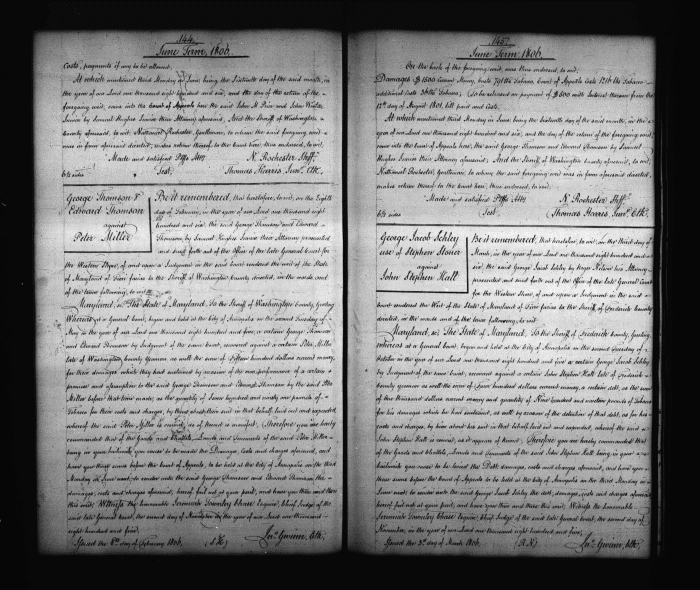 144
June Term, 1806.
Costs, payments if any to be allowed.
At which mentioned third Monday of June, being the Sixteenth day of the said month, in
the year of our Lord one thousand eight hundred and six, and the day of the return of the
foregoing writ, came into the Court of Appeals here the said John and John
Junior by Samuel Hughes Junior their Attorney aforesaid, And the Sheriff of Washington
County aforesaid, to wit, Nathaniel Rochester, Gentleman, to whom the said foregoing writ
was in form aforesaid directed, makes return thereof to the Court here, thus endorsed, to wit,
"Made and satisfied Plffs Atty N. Rochester Shff.
6/2 sides Test, Thomas Harris Junr. Clk.
George Thomson &
Edward Thomson
against
Peter Miller
Be it remembered, that heretofore, to wit, on the Eighth
day of February, in the year of our Lord one thousand eight
hundred and six, the said George Thomson and Edward
Thomson by Samuel Hughes Junior their Attorney prosecuted
and sued forth out of the Office of the late General Court for
the Western Shore, of and upon a Judgment in the said Court rendered the writ of the State
of Maryland of Fieri facias to the Sheriff of Washington County directed, in the words and
of the tenor following, to wit,
Maryland, sc. The State of Maryland, To the Sheriff of Washington County, Greeting
Whereas at a General Court, begun and held at the City of Annapolis on the second Tuesday of
May in the year of our Lord one thousand eight hundred and five, a certain George Thomson
and Edward Thomson by Judgment of the same Court, recovered against a certain Peter Miller
late of Washington County Yeoman as well the sum of Fifteen hundred dollars current money,
for their damages which they had sustained by occasion of the non performance of a certain
promise and assumption to the said George Thomson and Edward Thomson by the said Peter
Miller before that time made, as the quantity of hundred and ninety one pounds of
Tobacco for their costs and charges, by them about their suit in that behalf, laid out and expended,
whereof the said Peter Miller is convict, as of record is manifest, Therefore you are hereby
commanded that of the Goods and Chattels, Lands and Tenements of the said Peter Miller
being in your bailiwick you cause to be made the Damages, Costs and charges aforesaid, and
have you those sums before the Court of Appeals, to be held at the City of Annapolis on the third
Monday in June next, to render unto the said George Thomson and Edward Thomson, the
damages, costs and charges aforesaid, hereof fail not at your peril, and have you then and there
this writ, Witness the honorable Jeremiah Townley Chase Esquire, Chief Judge of the
said late General Court, the second day of November in the year of our Lord one thousand
eight hundred and five,
Issued the 8th day of February 1806. Jno. Gwinn, Clk.
145
June Term, 1806.
On the back of the foregoing writ, was thus endorsed, to wit,
Damages $1500 Current Money, Costs Tobacco, Court of Appeals Costs Tobacco
additional Costs Tobacco, (to be released on payment of $600 with Interest thereon from the
12th day of August 1801, till paid and Costs.
At which mentioned third Monday in June, being the sixteenth day of the said month, in the
year of our Lord one thousand eight hundred and six, and the day of the return of the foregoing writ,
came into the Court of Appeals here, the said George Thomson and Edward Thomson by Samuel
Hughes Junior their Attorney aforesaid, And the Sheriff of Washington County aforesaid, to wit,
Nathaniel Rochester, Gentleman, to whom the said foregoing writ was in form aforesaid directed,
makes return thereof to the Court here, thus endorsed, to wit,
"Made and satisfied Plffs Atty N. Rochester Shff.
6/2 sides Test, Thomas Harris Junr. Clk.
George Jacob Schley
use of Stephen Stoner
against
John Stephen Hall
Be it remembered, that heretofore, to wit, on the third day of
March, in the year of our Lord one thousand eight hundred and
six, the said George Jacob Schley by Roger Nelson his Attorney
prosecuted and sued forth out of the Office of the late General Court
for the Western Shore, of and upon a Judgment in the said
Court rendered the Writ of the State of Maryland of Fieri facias to the Sheriff of Frederick County
directed, in the words and of the tenor following, to wit,
Maryland, sc. The State of Maryland, To the Sheriff of Frederick County, Greeting
Whereas at a General Court, begun and held at the City of Annapolis on the second Tuesday of
October in the year of our Lord one thousand eight hundred and five a certain George Jacob Schley
by Judgment of the same Court, recovered against a certain John Stephen Hall late of Frederick
County yeoman as well the sum of hundred dollars current money, a certain debt, as the sum
of thousand dollars current money and quantity of Nine hundred and nineteen pounds of Tobacco
for his damages which he had sustained, as well by reason of the detention of that debt, as for his
costs and charges, by him about his suit in that behalf, laid out and expended, whereof the said
John Stephen Hall is convict, as it appears of record, Therefore you are hereby commanded that
of the Goods and Chattels, Lands and Tenements of the said John Stephen Hall being in your
bailiwick you cause to be levied the Debt, damages, costs and charges aforesaid, and have you
those sums before the Court of Appeals to be held at the City of Annapolis on the third Monday in
June next to render unto the said George Jacob Schley the debt, damages, costs and charges aforesaid
hereof fail not at your peril, and have you then and there this writ, Witness the honorable
Jeremiah Townley Chase Esquire, Chief Judge of the said late general Court, the second day of
November, in the year of our Lord one thousand eight hundred and five,
Issued the 3d. day of March 1806. (R.N.) Jno. Gwinn, Clk.